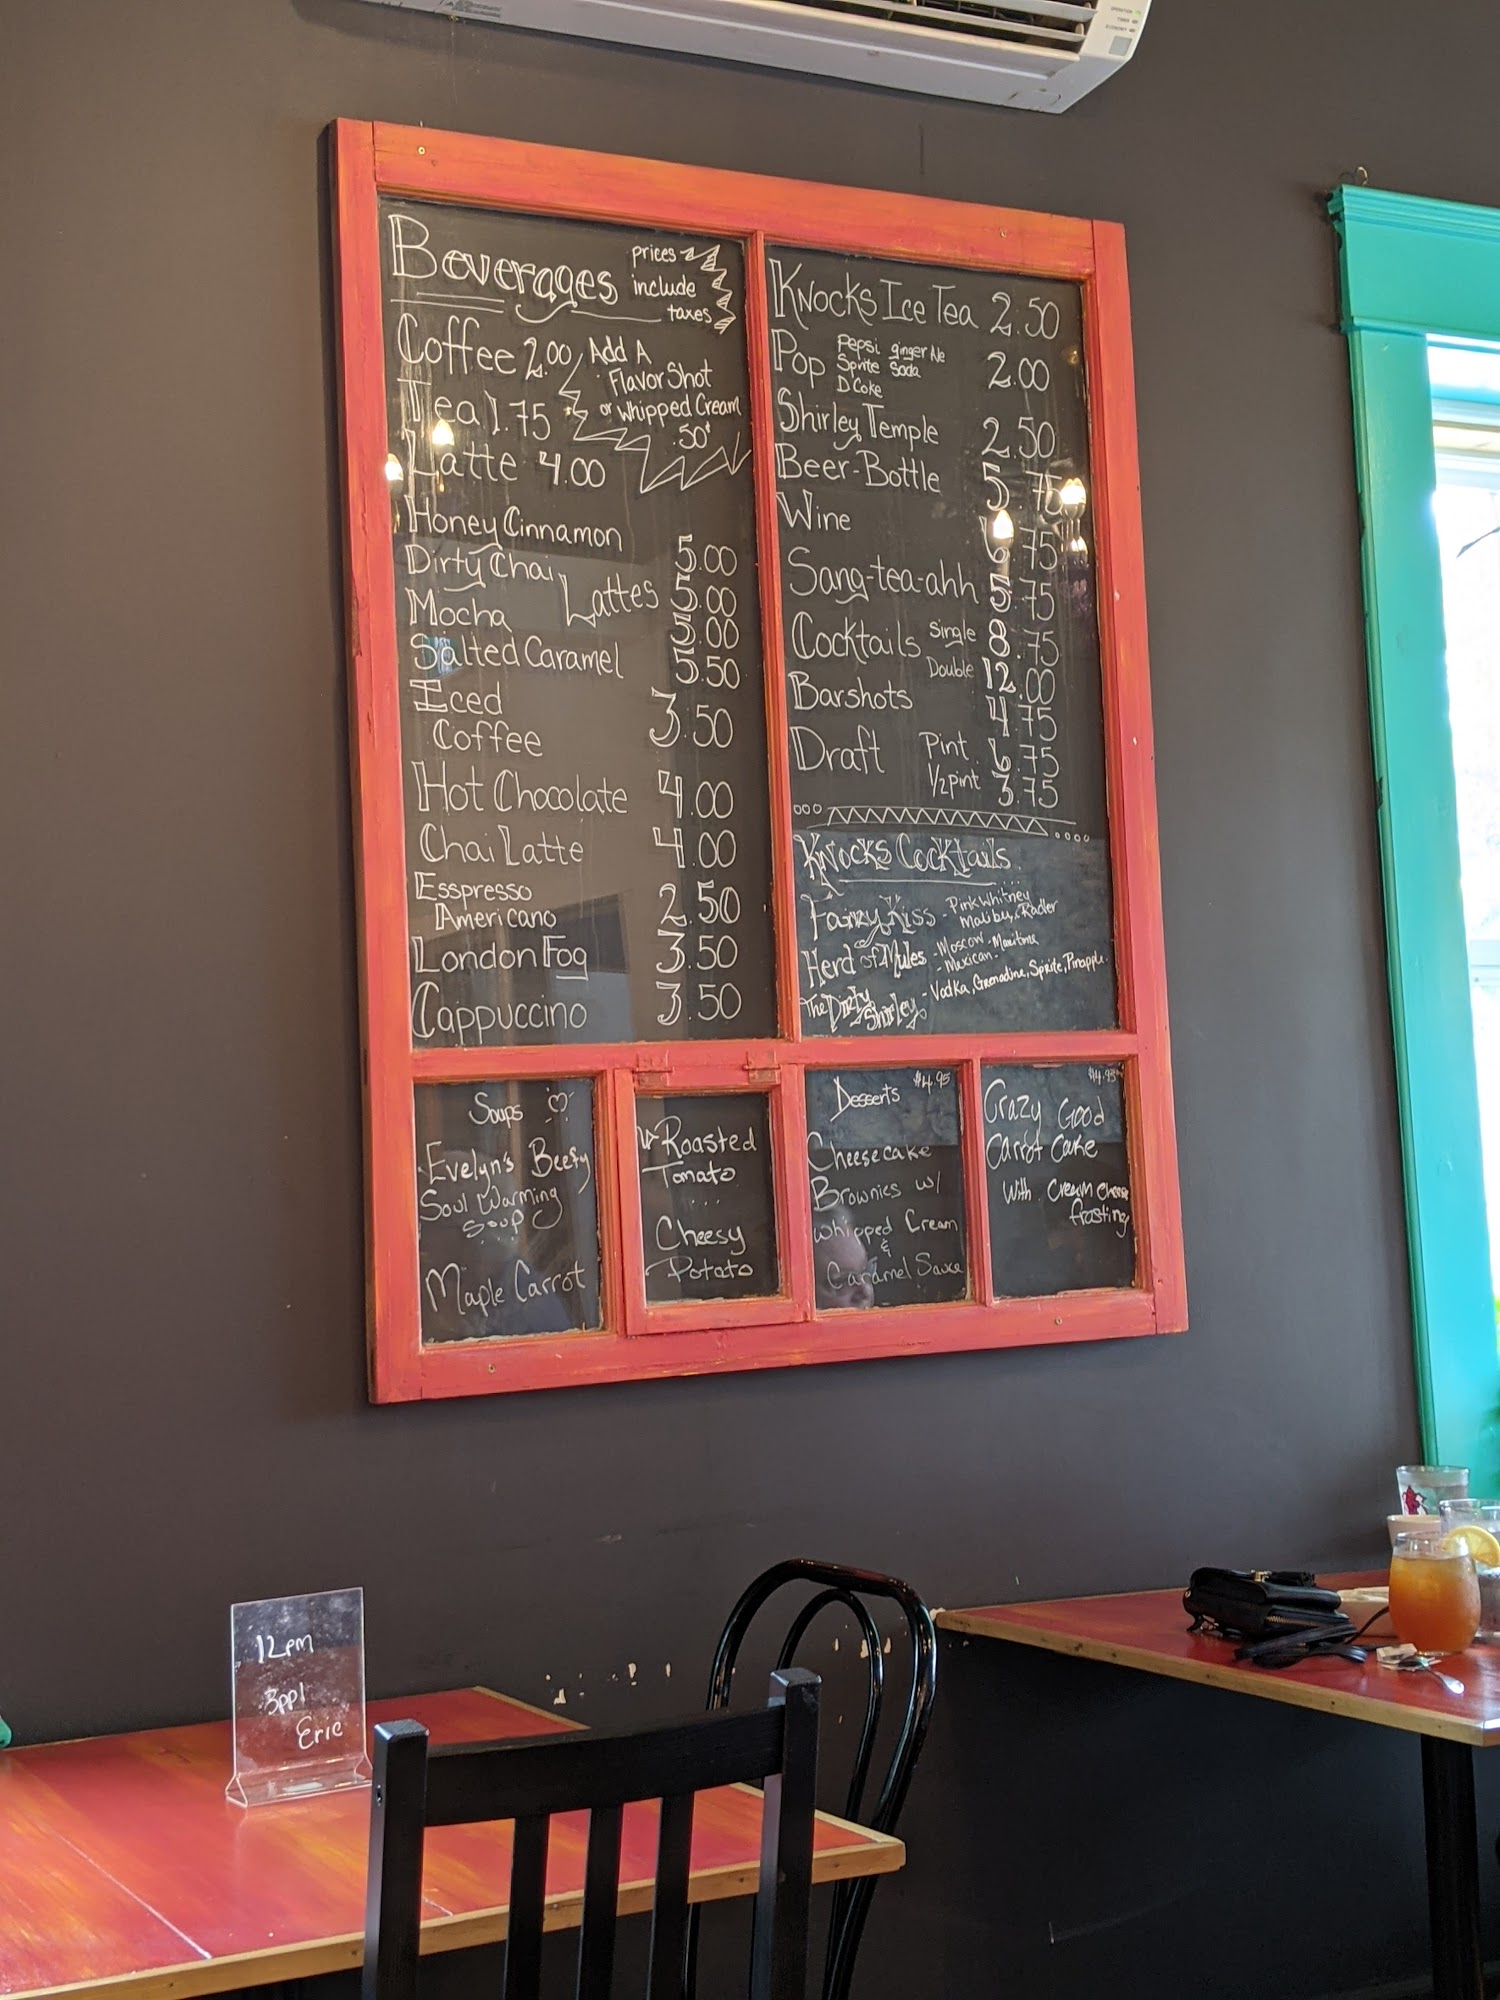 Beverages prices
include
taxes
Coffee 2.00 Add A
Flavor Shot
or Whipped Cream
.50¢
Tea 1.75
Latte 4.00
Honey Cinnamon 5.00
Dirty Chai Lattes 5.00
Mocha 5.00
Salted Caramel 5.50
Iced
Coffee 3.50
Hot Chocolate 4.00
Chai Latte 4.00
Esspresso
Americano 2.50
London Fog 3.50
Cappuccino 3.50
Knocks Ice Tea 2.50
Pop Pepsi ginger Ale 2.00
Sprite Soda
D Coke
Shirley Temple 2.50
Beer-Bottle 5.75
Wine 6.75
Sang-tea-ahh 5.75
Cocktails Single 8.75
Double 12.00
Barshots 4.75
Draft Pint 6.75
1/2 pint 3.75
Knocks Cocktails
Fairy Kiss - Pink Whitney
Malibu, Radler
Herd of Mules - Moscow - Maritime
- Mexican -
The Dirty
Shirley - Vodka, Grenadine, Sprite, Pinapple
Soups
Evelyn's Beefy
Soul Warming
Soup
Maple Carrot
Roasted
Tomato
Cheesy
Potato
Desserts $4.95
Cheesecake
Brownies w/
Whipped Cream
&
Caramel Sauce
$4.95
Crazy Good
Carrot Cake
With Cream Cheese
frosting
12pm
3ppl
Eric